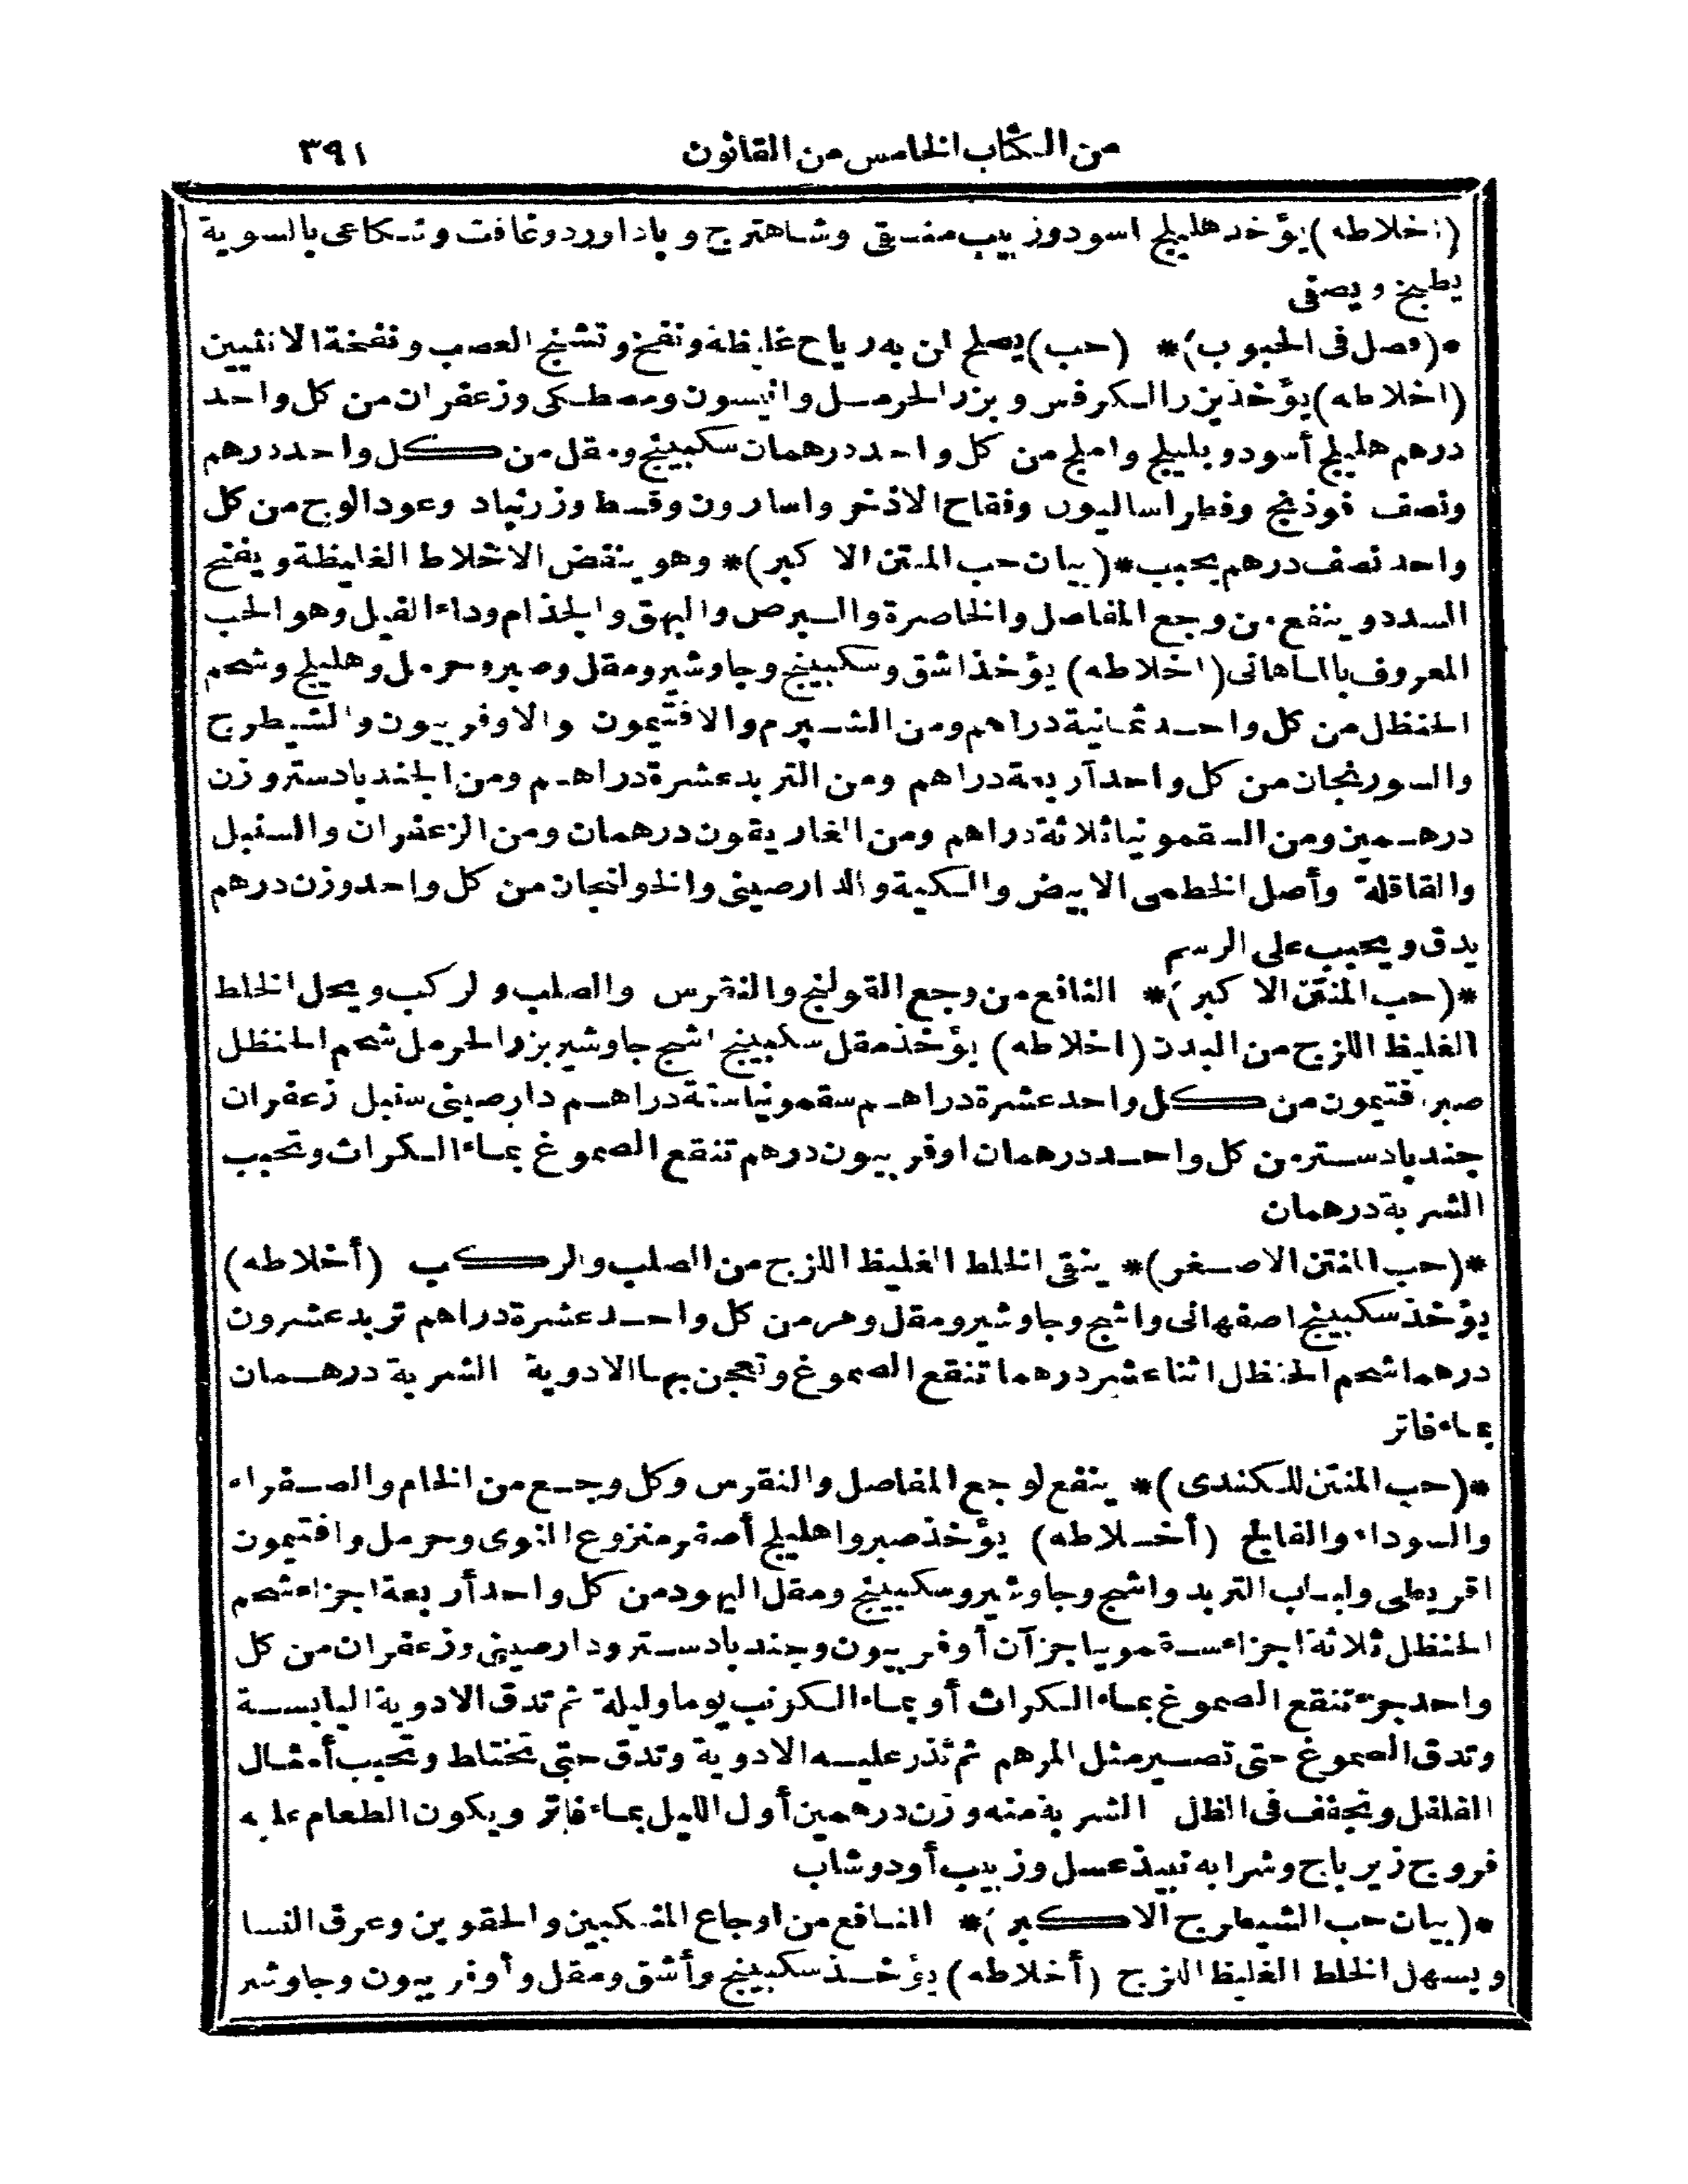 من الكتاب الخامس من القانون ٣٩١
(اخلاطه) يؤخذ هليلج اسود وزبيب منسقى وشاهترج وباداورد وغافت وشكاعى بالسوية
يطبخ ويصفى
*(فصل فى الحبوب)* (حب) يصلح لمن به رياح غليظة ونفخ وتشنج العصب ونفخة الانثيين
(اخلاطه) يؤخذ بزر الكرفس وبزر الحرمل وانيسون ومصطكى وزعفران من كل واحد
درهم هليلج أسود وبليلج واملج من كل واحد درهمان سكبينج ومقل من كل واحد درهم
ونصف فوذنج وفطراساليون وفقاح الاذخر واسارون وقسط وزرنباد وعود الوج من كل
واحد نصف درهم يحبب *(بيان حب المنتن الاكبر)* وهو ينقض الاخلاط الغليظة ويفتح
السدد وينفع من وجع المفاصل والخاصرة والبرص والبهق والجذام وداء الفيل وهو الحب
المعروف بالماهانى (اخلاطه) يؤخذ اشق وسكبينج وجاوشير ومقل وصبر وحرمل وهليلج وشحم
الحنظل من كل واحد ثمانية دراهم ومن الشبرم والافتيمون والاوفربيون والشيطرج
والسورنجان من كل واحد أربعة دراهم ومن التربد عشرة دراهم ومن الجندبادستر وزن
درهمين ومن السقمونيا ثلاثة دراهم ومن الغاريقون درهمان ومن الزعفران والسنبل
والقاقلة وأصل الخطمى الابيض والسكية والدارصينى والخولنجان من كل واحد وزن درهم
يدق ويحبب على الرسم
*(حب المنتن الاكبر)* النافع من وجع القولنج والنقرس والصلب والركب ويحل الخلط
الغليظ اللزج من البدن (اخلاطه) يؤخذ مقل سكبينج اشج جاوشير بزر الحرمل شحم الحنظل
صبر افتيمون من كل واحد عشرة دراهم سقمونيا ستة دراهم دارصينى سنبل زعفران
جندبادستر من كل واحد درهمان اوفربيون درهم تنقع الصموغ بماء الكراث وتحبب
الشربة درهمان
*(حب المنتن الاصغر)* ينقى الخلط الغليظ اللزج من الصلب والركب (أخلاطه)
يؤخذ سكبينج اصفهانى واشج وجاوشير ومقل وحرمن كل واحد عشرة دراهم تربد عشرون
درهما شحم الحنظل اثنا عشر درهما تنقع الصموغ وتعجن بها الادوية الشربة درهمان
بماء فاتر
*(حب المنتن للكندى)* ينفع لوجع المفاصل والنقرس وكل وجع من الخام والصفراء
والسوداء والفالج (أخلاطه) يؤخذ صبر واهليلج أصفر منزوع النوى وحرمل وافتيمون
اقريطى ولباب التربد واشج وجاوشير وسكبينج ومقل اليهود من كل واحد أربعة اجزاء شحم
الحنظل ثلاثة اجزاء سقمونيا جزآن أوفربيون وجندبادستر ودارصينى وزعفران من كل
واحد جزء تنقع الصموغ بماء الكراث أو بماء الكرنب يوما وليلة ثم تدق الادوية اليابسة
وتدق الصموغ حتى تصير مثل المرهم ثم تذر عليه الادوية وتدق حتى تختلط وتحبب أمثال
الفلفل وتجفف فى الظل الشربة منه وزن درهمين أول الليل بماء فاتر ويكون الطعام عليه
فروج زيرباج وشرابه نبيذ عسل وزبيب أو دوشاب
*(بيان حب الشيطرج الاكبر)* النافع من اوجاع المنكبين والحقوين وعرق النسا
ويسهل الخلط الغليظ اللزج (أخلاطه) يؤخذ سكبينج وأشق ومقل وأوفربيون وجاوشير